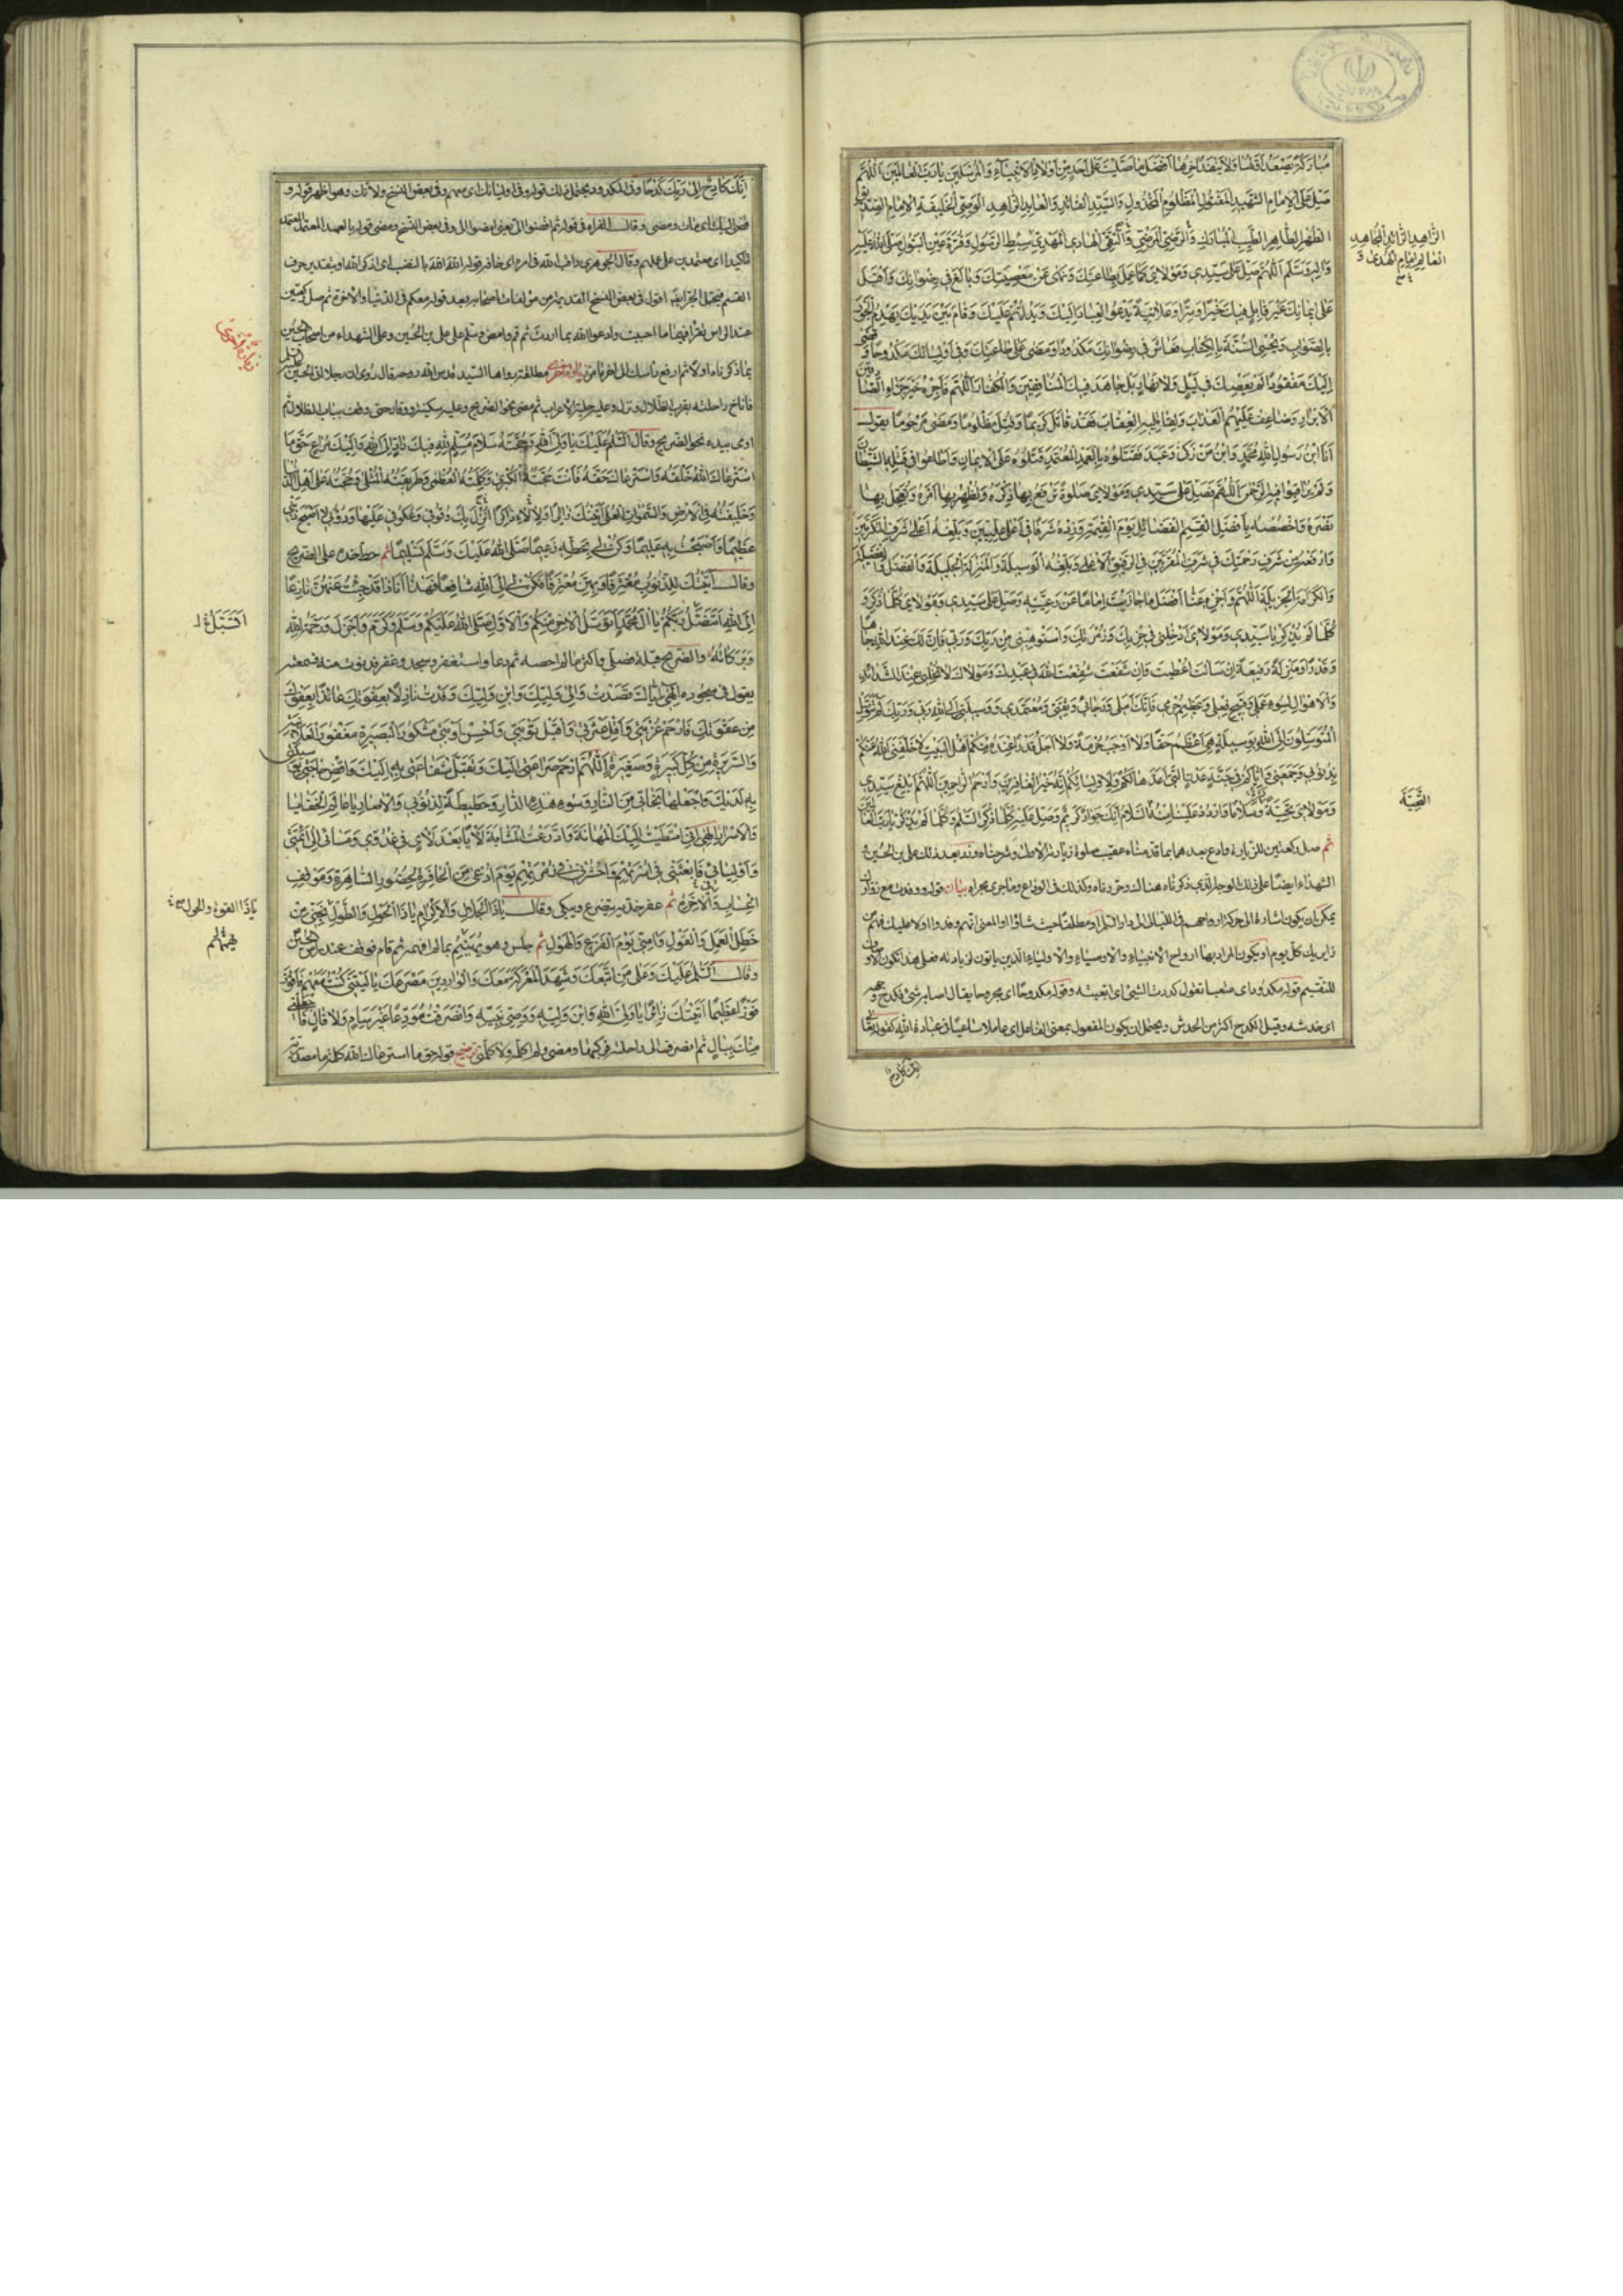 مُبَارَكَةً يَصْعَدُ أَوَّلُهَا وَلَا يَنْفَدُ آخِرُهَا أَفْضَلَ مَا صَلَّيْتَ عَلَى أَحَدٍ مِنْ أَوْلَادِ الْأَنْبِيَاءِ وَالْمُرْسَلِينَ يَا رَبَّ الْعَالَمِينَ اَللّٰهُمَّ
صَلِّ عَلَى الْإِمَامِ الشَّهِيدِ الْمَقْتُولِ الْمَظْلُومِ الْمَخْذُولِ وَالسَّيِّدِ الْقَائِدِ وَالْعَابِدِ الزَّاهِدِ الْوَصِيِّ الْخَلِيفَةِ الْإِمَامِ الصِّدِّيقِ
الطُّهْرِ الطَّاهِرِ الطَّيِّبِ الْمُبَارَكِ وَالرَّضِيِّ الْمَرْضِيِّ وَالتَّقِيِّ الْهَادِي الْمَهْدِيِّ سِبْطِ الرَّسُولِ وَقُرَّةِ عَيْنِ الْبَتُولِ صَلَّى اللهُ عَلَيْهِ
وَآلِهِ وَسَلَّمَ اَللّٰهُمَّ صَلِّ عَلَى سَيِّدِي وَمَوْلَايَ كَمَا عَمِلَ بِطَاعَتِكَ وَنَهَى عَنْ مَعْصِيَتِكَ وَبَالَغَ فِي رِضْوَانِكَ وَأَقْبَلَ
عَلَى إِيمَانِكَ غَيْرَ قَابِلٍ فِيكَ عُذْرًا سِرًّا وَعَلَانِيَةً يَدْعُو الْعِبَادَ إِلَيْكَ وَيَدُلُّهُمْ عَلَيْكَ وَقَامَ بَيْنَ يَدَيْكَ يَهْدِمُ الْجَوْرَ
بِالصَّوَابِ وَيُحْيِي السُّنَّةَ بِالْكِتَابِ فَعَاشَ فِي رِضْوَانِكَ مَكْدُودًا وَمَضَى عَلَى طَاعَتِكَ وَفِي أَوْلِيَائِكَ مَكْدُوحًا وَقَضَى
إِلَيْكَ مَفْقُودًا لَمْ يَعْصِكَ فِي لَيْلٍ وَلَا نَهَارٍ بَلْ جَاهَدَ فِيكَ الْمُنَافِقِينَ وَالْكُفَّارَ اَللّٰهُمَّ فَاجْزِهِ خَيْرَ جَزَاءِ الصَّادِقِينَ
الْأَبْرَارِ وَضَاعِفْ عَلَيْهِمُ الْعَذَابَ وَلِقَاتِلِيهِ الْعِقَابَ فَقَدْ قَاتَلَ كَرِيمًا وَقُتِلَ مَظْلُومًا وَمَضَى مَرْحُومًا يَقُولُ
أَنَا ابْنُ رَسُولِ اللهِ مُحَمَّدٍ وَابْنُ مَنْ زَكَّى وَعَبَدَ فَقَتَلُوهُ بِالْعَمْدِ الْمُعْتَمَدِ قَتَلُوهُ عَلَى الْإِيمَانِ وَأَطَاعُوا فِي قَتْلِهِ الشَّيْطَانَ
وَلَمْ يُرَاقِبُوا فِيهِ الرَّحْمٰنَ اَللّٰهُمَّ فَصَلِّ عَلَى سَيِّدِي وَمَوْلَايَ صَلٰوةً تَرْفَعُ بِهَا ذِكْرَهُ وَتُظْهِرُ بِهَا أَمْرَهُ وَتُعَجِّلُ بِهَا
نَصْرَهُ وَاخْصُصْهُ بِأَفْضَلِ قِسَمِ الْفَضَائِلِ يَوْمَ الْقِيٰمَةِ وَزِدْهُ شَرَفًا فِي أَعْلَى عِلِّيِّينَ وَبَلِّغْهُ أَعْلَى شَرَفِ الْمُكَرَّمِينَ
وَارْفَعْهُ مِنْ شَرَفِ رَحْمَتِكَ فِي شَرَفِ الْمُقَرَّبِينَ فِي الرَّفِيعِ الْأَعْلَى وَبَلِّغْهُ الْوَسِيلَةَ وَالْمَنْزِلَةَ الْجَلِيلَةَ وَالْفَضْلَ وَالْفَضِيلَةَ
وَالْكَرَامَةَ الْجَزِيلَةَ اَللّٰهُمَّ وَاجْزِهِ عَنَّا أَفْضَلَ مَا جَازَيْتَ إِمَامًا عَنْ رَعِيَّتِهِ وَصَلِّ عَلَى سَيِّدِي وَمَوْلَايَ كُلَّمَا ذُكِرَ وَ
كُلَّمَا لَمْ يُذْكَرْ يَا سَيِّدِي وَمَوْلَايَ أَدْخِلْنِي فِي حِزْبِكَ وَزُمْرَتِكَ وَاسْتَوْهِبْنِي مِنْ رَبِّكَ وَرَبِّي فَإِنَّ لَكَ عِنْدَ اللهِ جَاهًا
وَقَدْرًا وَمَنْزِلَةً رَفِيعَةً إِنْ سَأَلْتَ أُعْطِيتَ وَإِنْ شَفَعْتَ شُفِّعْتَ اللهَ اللهَ فِي عَبْدِكَ وَمَوْلَاكَ لَا تُخَلِّنِي عِنْدَ الشَّدَائِدِ
وَالْأَهْوَالِ لِسُوءِ عَمَلِي وَقَبِيحِ فِعْلِي وَعَظِيمِ جُرْمِي فَإِنَّكَ أَمَلِي وَرَجَائِي وَثِقَتِي وَمُعْتَمَدِي وَوَسِيلَتِي إِلَى اللهِ رَبِّي وَرَبِّكَ لَمْ يَتَوَسَّلِ
الْمُتَوَسِّلُونَ إِلَى اللهِ بِوَسِيلَةٍ هِيَ أَعْظَمُ حَقًّا وَلَا أَوْجَبُ حُرْمَةً وَلَا أَجَلُّ قَدْرًا عِنْدَهُ مِنْكُمْ أَهْلَ الْبَيْتِ لَا خَلَّفَنِيَ اللهُ عَنْكُمْ
بِذُنُوبِي وَجَمَعَنِي وَإِيَّاكُمْ فِي جَنَّةِ عَدْنٍ الَّتِي أَعَدَّهَا لَكُمْ وَلِأَوْلِيَائِكُمْ إِنَّهُ خَيْرُ الْغَافِرِينَ وَأَرْحَمُ الرَّاحِمِينَ اَللّٰهُمَّ أَبْلِغْ سَيِّدِي
وَمَوْلَايَ تَحِيَّةً وَسَلَامًا وَارْدُدْ عَلَيْنَا مِنْهُ السَّلَامَ إِنَّكَ جَوَادٌ كَرِيمٌ وَصَلِّ عَلَيْهِ كُلَّمَا ذُكِرَ السَّلَامُ وَكُلَّمَا لَمْ يُذْكَرْ يَا رَبَّ الْعَالَمِينَ
ثم صل ركعتين للزيارة وادع بعدهما بما قدمناه عقيب صلوة زيارته الاولى وشرحناه وزر بعد ذلك على بن الحسين و
الشهداء ايضا على ذلك الوجه الذى ذكرناه هنالك وحررناه وكذلك فى الوداع وما جرى مجراه بيان قوله
يمكن ان يكون اشارة الى حركة ارواحهم
زايريك كل يوم او يكون المراد بها ارواح الانبياء والاوصياء والاولياء الذين ياتون لزيارته فعلى هذا تكون الواو
للتقسيم قوله مكدودا اى متعبا تقول كددت الشئ اى اتعبته وقوله مكدوحا اى مجروحا يقال اصابه شئ فكدح وجهه
اى خدشه وقيل الكدح اكثر من الخدش ويحتمل ان يكون المفعول بمعنى الفاعل اى عاملا ساعيا فى عبادة الله كقوله تعالى
انك كادح
الزَّاهِدِ الذَّائِدِ الْمُجَاهِدِ
الْعَالِمِ إِمَامِ الْهُدَى وَ
التَّحِيَّةَ
إِنَّكَ كَادِحٌ إِلَى رَبِّكَ كَدْحًا وكذا المكدود ويحتمل ذلك قوله وفى اوليائك اى معهم وفى بعض النسخ ولاتك وهو اظهر قوله و
قضى اليك اى مات ومضى وقال الفراء فى قوله ثم اقضوا الىّ يعنى امضوا الىّ وفى بعض النسخ ومضى قوله بالعمد المعتمد
تاكيد اى معتمدين على علم وقال الجوهرى راقب الله فى امره اى خافه قوله الله الله بالنصب اى اذكر الله او بتقدير حرف
القسم فيحتمل الجر ايضا اقول فى بعض النسخ القديمة من مؤلفات اصحابنا بعد قوله معكم فى الدنيا والاخرة ثم صل ركعتين
عند الراس تقرأ فيهما ما احببت وادعو الله بما اردت ثم قم وامض وسلم على على بن الحسين وعلى الشهداء من اصحاب الحسين
بما ذكرناه اولا ثم ارفع راسك الى اخر ما مر زيارة اخرى مطلقة رواها السيد قدس الله روحه قال روى ان رجلا اتى الحسين
فاناخ راحلته بقرب الظلال ونزل وعليه حلية الاعراب ثم مضى نحو الضريح وعليه سكينة ووقار حتى وقف بباب الظلال ثم
اومى بيده نحو الضريح وقال اَلسَّلَامُ عَلَيْكَ يَا وَلِيَّ اللهِ وَحُجَّتَهُ سَلَامَ مُسَلِّمٍ لِلّٰهِ فِيكَ رَادٍّ إِلَى اللهِ وَإِلَيْكَ مُرَاعٍ حَقَّ مَا
اسْتَرْعَاكَ اللهُ خَلْقَهُ وَاسْتَرْعَاكَ حَقَّهُ فَأَنْتَ حُجَّتُهُ الْكُبْرَى وَكَلِمَتُهُ الْعُظْمَى وَطَرِيقَتُهُ الْمُثْلَى وَحُجَّتُهُ عَلَى أَهْلِ الدُّنْيَا
وَخَلِيفَتُهُ فِي الْأَرْضِ وَالسَّمٰوَاتِ الْعُلَى أَتَيْتُكَ زَائِرًا وَلِآلَاءِ اللهِ ذَاكِرًا
عَظِيمًا وَأَصْبَحْتُ بِهِ عَلِيمًا وَكُنْ لِي بِحَطِّهِ زَعِيمًا صَلَّى اللهُ عَلَيْكَ وَسَلَّمَ تَسْلِيمًا ثم حط خده على الضريح
وقال أَتَيْتُكَ لِلذُّنُوبِ مُقْتَرِفًا وَبِهِنَّ مُعْتَرِفًا فَكُنْ لِي إِلَى اللهِ شَافِعًا فَهَا أَنَا ذَا قَدْ جِئْتُ عَنْهُنَّ نَازِعًا
صَلَّى اللهُ عَلَيْكُمْ وَسَلَّمَ وَكَرَّمَ وَأَجْزَلَ وَرَحْمَةُ اللهِ
وَبَرَكَاتُهُ والضريح قبلة فصلى فاكثر ما لم احصه ثم دعا واستغفر وسجد وعفر فدنوت منه فسمعته
يقول فى سجوده إِلٰهِي إِيَّاكَ قَصَدْتُ وَإِلَى وَلِيِّكَ وَابْنِ وَلِيِّكَ وَفَدْتُ نَازِلًا بِعَفْوَتِكَ عَائِذًا بِعَفْوِكَ
مِنْ عُقُوبَتِكَ فَارْحَمْ غُرْبَتِي وَأَقِلْ عَثْرَتِي وَاقْبَلْ تَوْبَتِي وَأَحْسِنْ أَوْبَتِي مَشْكُورَ الْبَصِيرَةِ مَغْفُورَ الْعَلَانِيَةِ
وَالسَّرِيرَةِ مِنْ كُلِّ كَبِيرَةٍ وَصَغِيرَةٍ اَللّٰهُمَّ ارْحَمْ ضَرَاعَتِي إِلَيْكَ وَتَقَبَّلْ شَفَاعَتِي بِهِ إِلَيْكَ وَاقْضِ حَاجَتِي بِتَوَسُّلِي
بِهِ لَدَيْكَ وَاجْعَلْهَا نَجَاتِي مِنَ النَّارِ وَسُوءِ هٰذِهِ الدَّارِ وَحَطِيطَةً لِذُنُوبِي وَالْآصَارِ يَا عَالِمَ الْخَفَايَا
وَالْأَسْرَارِ إِلٰهِي
وَأَوْلِيَائِي فَابْعَثْنِي فِي أُسْرَتِهِمْ وَاحْشُرْنِي فِي زُمْرَتِهِمْ يَوْمَ أُدْعَى مِنَ الْحَافِرَةِ لِحُضُورِ السَّاهِرَةِ وَمَوْقِفِ
الْحِسَابِ وَالْآخِرَةِ ثم عفر خديه يتضرع ويبكى وقال يَا ذَا الْجَلَالِ وَالْإِكْرَامِ يَا ذَا الْحَوْلِ وَالطَّوْلِ نَجِّنِي مِنْ
خَطَلِ الْعَمَلِ وَالْقَوْلِ وَآمِنِّي يَوْمَ الْفَزَعِ وَالْهَوْلِ ثم جلس وهو يهينم بما لم افهمه ثم قام فوقف عند راس الحسين
وقال اَلسَّلَامُ عَلَيْكَ وَعَلَى مَنِ اتَّبَعَكَ وَشَهِدَ الْمَعْرَكَةَ مَعَكَ وَالْوَارِدِينَ مَصْرَعَكَ يَا لَيْتَنِي كُنْتُ مَعَهُمْ فَأَفُوزَ
فَوْزًا عَظِيمًا أَتَيْتُكَ زَائِرًا يَا وَلِيَّ اللهِ وَابْنَ وَلِيِّهِ وَوَصِيَّ نَبِيِّهِ وَانْصَرَفْتُ مُوَدِّعًا غَيْرَ سَئِمٍ وَلَا قَالٍ فَاجْعَلْنِي
مِنْكَ بِبَالٍ ثم انصرف الى راحلته فركبها ومضى ولم اكلمه ولا كلمنى توضيح قوله حق ما استرعاك الله كلمة ما مصدرية
زيارة اخرى
يَا ذَا الْقُوَّةِ وَالْحَوْلِ
يهينم